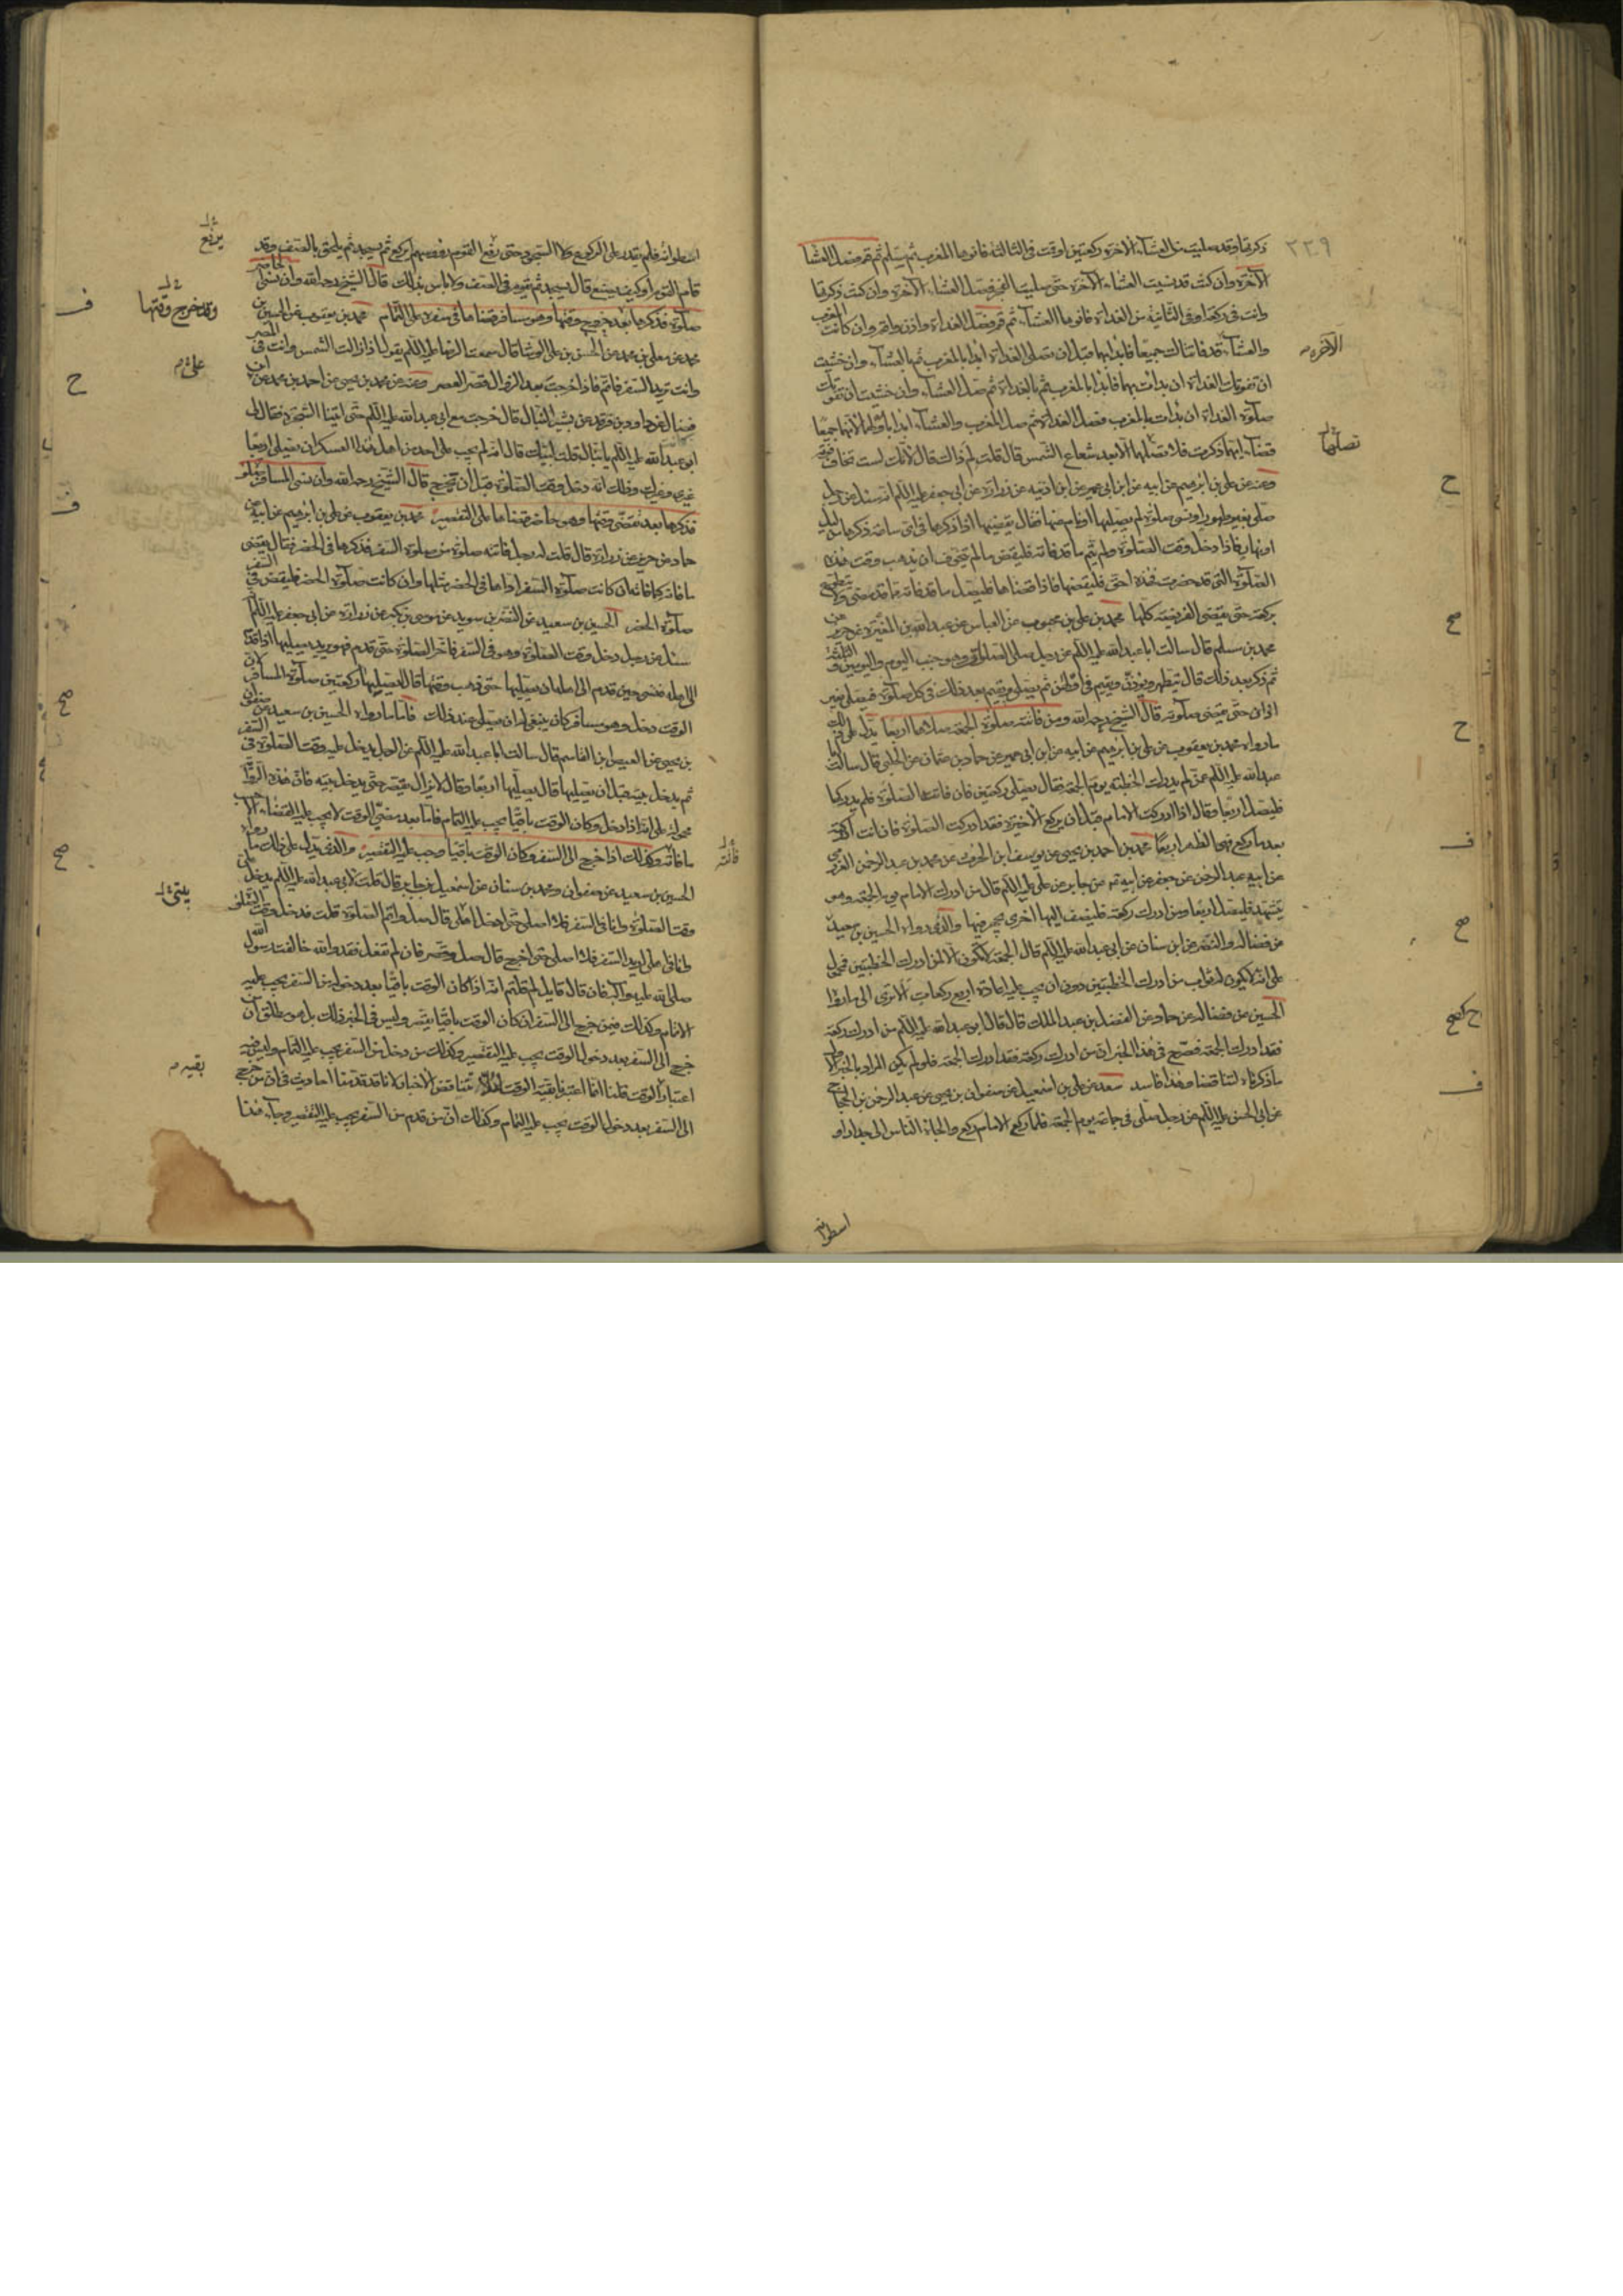 ٣٣٩
ذكرتها وقد صليت من العشاء الآخرة ركعتين او قمت في الثالثة فانوها المغرب ثم سلم ثم قم فصل العشاء
الآخرة وان كنت قد نسيت العشاء الآخرة حتى صليت الفجر فصل العشاء الآخرة وان كنت ذكرتها
وانت في ركعة او في الثانية من الغداة فانوها العشاء ثم قم فصل الغداة واذن واقم وان كانت المغرب
والعشاء قد فاتتاك جميعا فابدأ بهما قبل ان تصلي الغداة ابدأ بالمغرب ثم بالعشاء وان خشيت
الآخرة
ان تفوتك الغداة ان بدأت بهما فابدأ بالمغرب ثم بالغداة ثم صل العشاء وان خشيت ان تفوتك
صلوة الغداة ان بدأت بالمغرب فصل الغداة ثم صل المغرب والعشاء ابدأ باولهما لانهما جميعا
قضاء ايهما ذكرت فلا تصلهما الا بعد شعاع الشمس قال قلت لم ذاك قال لانك لست تخاف فوته
تصلهما
وعنه عن علي بن ابرهيم عن ابيه عن ابن ابي عمير عن ابن اذينه عن زرارة عن ابي جعفر عليه السلام انه سئل عن رجل
صلى بغير طهور او نسي صلوة لم يصليها او نام عنها فقال يقضيها اذا ذكرها في اي ساعة ذكرها من ليل
او نهار فاذا دخل وقت الصلوة ولم يتم ما قد فاته فليقض ما لم يتخوف ان يذهب وقت هذه
الصلوة التي قد حضرت وهذه احق فليقضها فاذا قضاها فليصل ما قد فاته ما قد مضى ولا يتطوع
بركعة حتى يقضي الفريضة كلها محمد بن علي بن محبوب عن العباس عن عبد الله بن المغيرة عن حريز عن
محمد بن مسلم قال سالت ابا عبد الله عليه السلام عن رجل صلى الصلوات وهو جنب اليوم واليومين والثلثة
ثم ذكر بعد ذلك قال يتطهر ويؤذن ويقيم في اولهن ثم يصلي ويقيم بعد ذلك في كل صلوة فيصلي بغير
اذان حتى يقضي صلوته قال الشيخ رحمه الله ومن فاتته صلوة الجمعة صلاها اربعا يدل على ذلك
ما رواه محمد بن يعقوب عن علي بن ابرهيم عن ابيه عن ابن ابي عمير عن حماد بن عثمان عن الحلبي قال سالت ابا
عبد الله عليه السلام عمن لم يدرك الخطبة يوم الجمعة فقال يصلي ركعتين فان فاتته الصلوة فلم يدركها
فليصل اربعا وقال اذا ادركت الامام قبل ان يركع الاخيرة فقد ادركت الصلوة فان انت ادركته
بعد ما ركع فهي الظهر اربعا محمد بن احمد بن يحيى عن يوسف ابن الحرث عن محمد بن عبد الرحمن العزرمي
عن ابيه عبد الرحمن عن جعفر عن ابيه عن جابر عن علي عليه السلام قال من ادرك الامام يوم الجمعة وهو
يتشهد فليصل اربعا ومن ادرك ركعة فليضف اليها اخرى يجهر فيها والذي رواه الحسين بن سعيد
عن فضالة والنضر عن ابن سنان عن ابي عبد الله عليه السلام قال الجمعة لا تكون الا لمن ادرك الخطبتين فمحمول
على انه لا يكون له ثواب من ادرك الخطبتين دون ان يجب عليه اعادة اربع ركعات الا ترى الى ما رواه
الحسين عن فضالة عن حماد عن الفضل بن عبد الملك قال قال ابو عبد الله عليه السلام من ادرك ركعة
فقد ادرك الجمعة فصرح في هذا الخبر ان من ادرك ركعة فقد ادرك الجمعة فلو لم يكن المراد بالخبر الاول
ما ذكرناه لتناقضا وهذا فاسد سعد عن علي بن اسمعيل عن صفوان بن يحيى عن عبد الرحمن بن الحجاج
عن ابي الحسن عليه السلام عن رجل صلى في جماعة يوم الجمعة فلما ركع الامام ركع والجأه الناس الى جدار او
اسطوانة
ح
صح
ح
ف
صح
ف
اسطوانة فلم يقدر على الركوع ولا السجود حتى رفع القوم رؤسهم ايركع ثم يسجد ثم يلحق بالصف وقد
يرفع
قام القوم او كيف يصنع قال يسجد ثم يقوم في الصف ولا باس بذلك قال الشيخ رحمه الله وان نسي الحاضر
صلوة فذكرها بعد خروج وقتها وهو مسافر قضاها في سفره على التمام محمد بن يعقوب عن الحسين بن
وقد خرج وقتها
محمد عن معلى بن محمد عن الحسن بن علي الوشا قال سمعت الرضا عليه السلام يقول اذا زالت الشمس وانت في المصر
وانت تريد السفر فاتم فاذا خرجت بعد الزوال قصر العصر وعنه عن محمد بن يحيى عن احمد بن محمد عن ابن
فضال عن داود بن فرقد عن بشير النبال قال خرجت مع ابي عبد الله عليه السلام حتى اتينا الشجرة فقال لي
ابو عبد الله عليه السلام يا نبال قلت لبيك قال انه لم يجب على احد من اهل هذا العسكر ان يصلي اربعا
غيري وغيرك وذلك انه دخل وقت الصلوة قبل ان نخرج قال الشيخ رحمه الله وان نسي المسافر صلوة
فذكرها بعد تقضي وقتها وهو حاضر قضاها على التقصير محمد بن يعقوب عن علي بن ابرهيم عن ابيه عن
حماد عن حريز عن زرارة قال قلت له رجل فاتته صلوة من صلوة السفر فذكرها في الحضر فقال يقضي
ما فاته كما فاته ان كانت صلوة السفر اداها في الحضر مثلها وان كانت صلوة الحضر فليقض في السفر
صلوة الحضر الحسين بن سعيد عن النضر بن سويد عن موسى بن بكر عن زرارة عن ابي جعفر عليه السلام
سئل عن رجل دخل وقت الصلوة وهو في السفر فاخر الصلوة حتى قدم فهو يريد يصليها اذا قدم
الى اهله فنسي حين قدم الى اهله ان يصليها حتى ذهب وقتها قال يصليها ركعتين صلوة المسافر لان
الوقت دخل وهو مسافر كان ينبغي له ان يصلي عند ذلك فاما ما رواه الحسين بن سعيد عن صفوان
بن يحيى عن العيص ابن القاسم قال سالت ابا عبد الله عليه السلام عن الرجل يدخل عليه وقت الصلوة في السفر
ثم يدخل بيته قبل ان يصليها قال يصليها اربعا وقال لا يزال يقصر حتى يدخل بيته فان هذه الرواية
محمولة على انه اذا دخل وكان الوقت باقيا يجب عليه التمام فاما بعد مضي الوقت لا يجب عليه القضاء الا حسب
ما فاته وكذلك اذا خرج الى السفر وكان الوقت باقيا وجب عليه التقصير والذي يدل على ذلك ما رواه
فاتته
الحسين بن سعيد عن صفوان ومحمد بن سنان عن اسمعيل بن جابر قال قلت لابي عبد الله عليه السلام يدخل علي
وقت الصلوة وانا في السفر فلا اصلي حتى ادخل اهلي قال صل واتم الصلوة قلت فدخل وقت الصلوة
وانا في اهلي اريد السفر فلا اصلي حتى اخرج قال صل وقصر فان لم تفعل فقد والله خالفت رسول الله
صلى الله عليه وآله فان قال قايل لم قلتم انه اذا كان الوقت باقيا بعد دخوله من السفر يجب عليه
الاتمام وكذلك فيمن خرج الى السفر ان كان الوقت باقيا يقصر وليس في الخبر ذلك بل هو مطلق ان
خرج الى السفر بعد دخول الوقت يجب عليه التقصير وكذلك من دخل من السفر يجب عليه التمام وليس فيه
اعتبار الوقت قلنا انما اعتبرنا بقية الوقت لئلا تتناقض الاخبار لانا قد قدمنا احاديث في ان من خرج
بقية
الى السفر بعد دخول الوقت يجب عليه التمام وكذلك ان من قدم من السفر يجب عليه التقصير وجاء هذا
ف
ح
ف
صح
صح